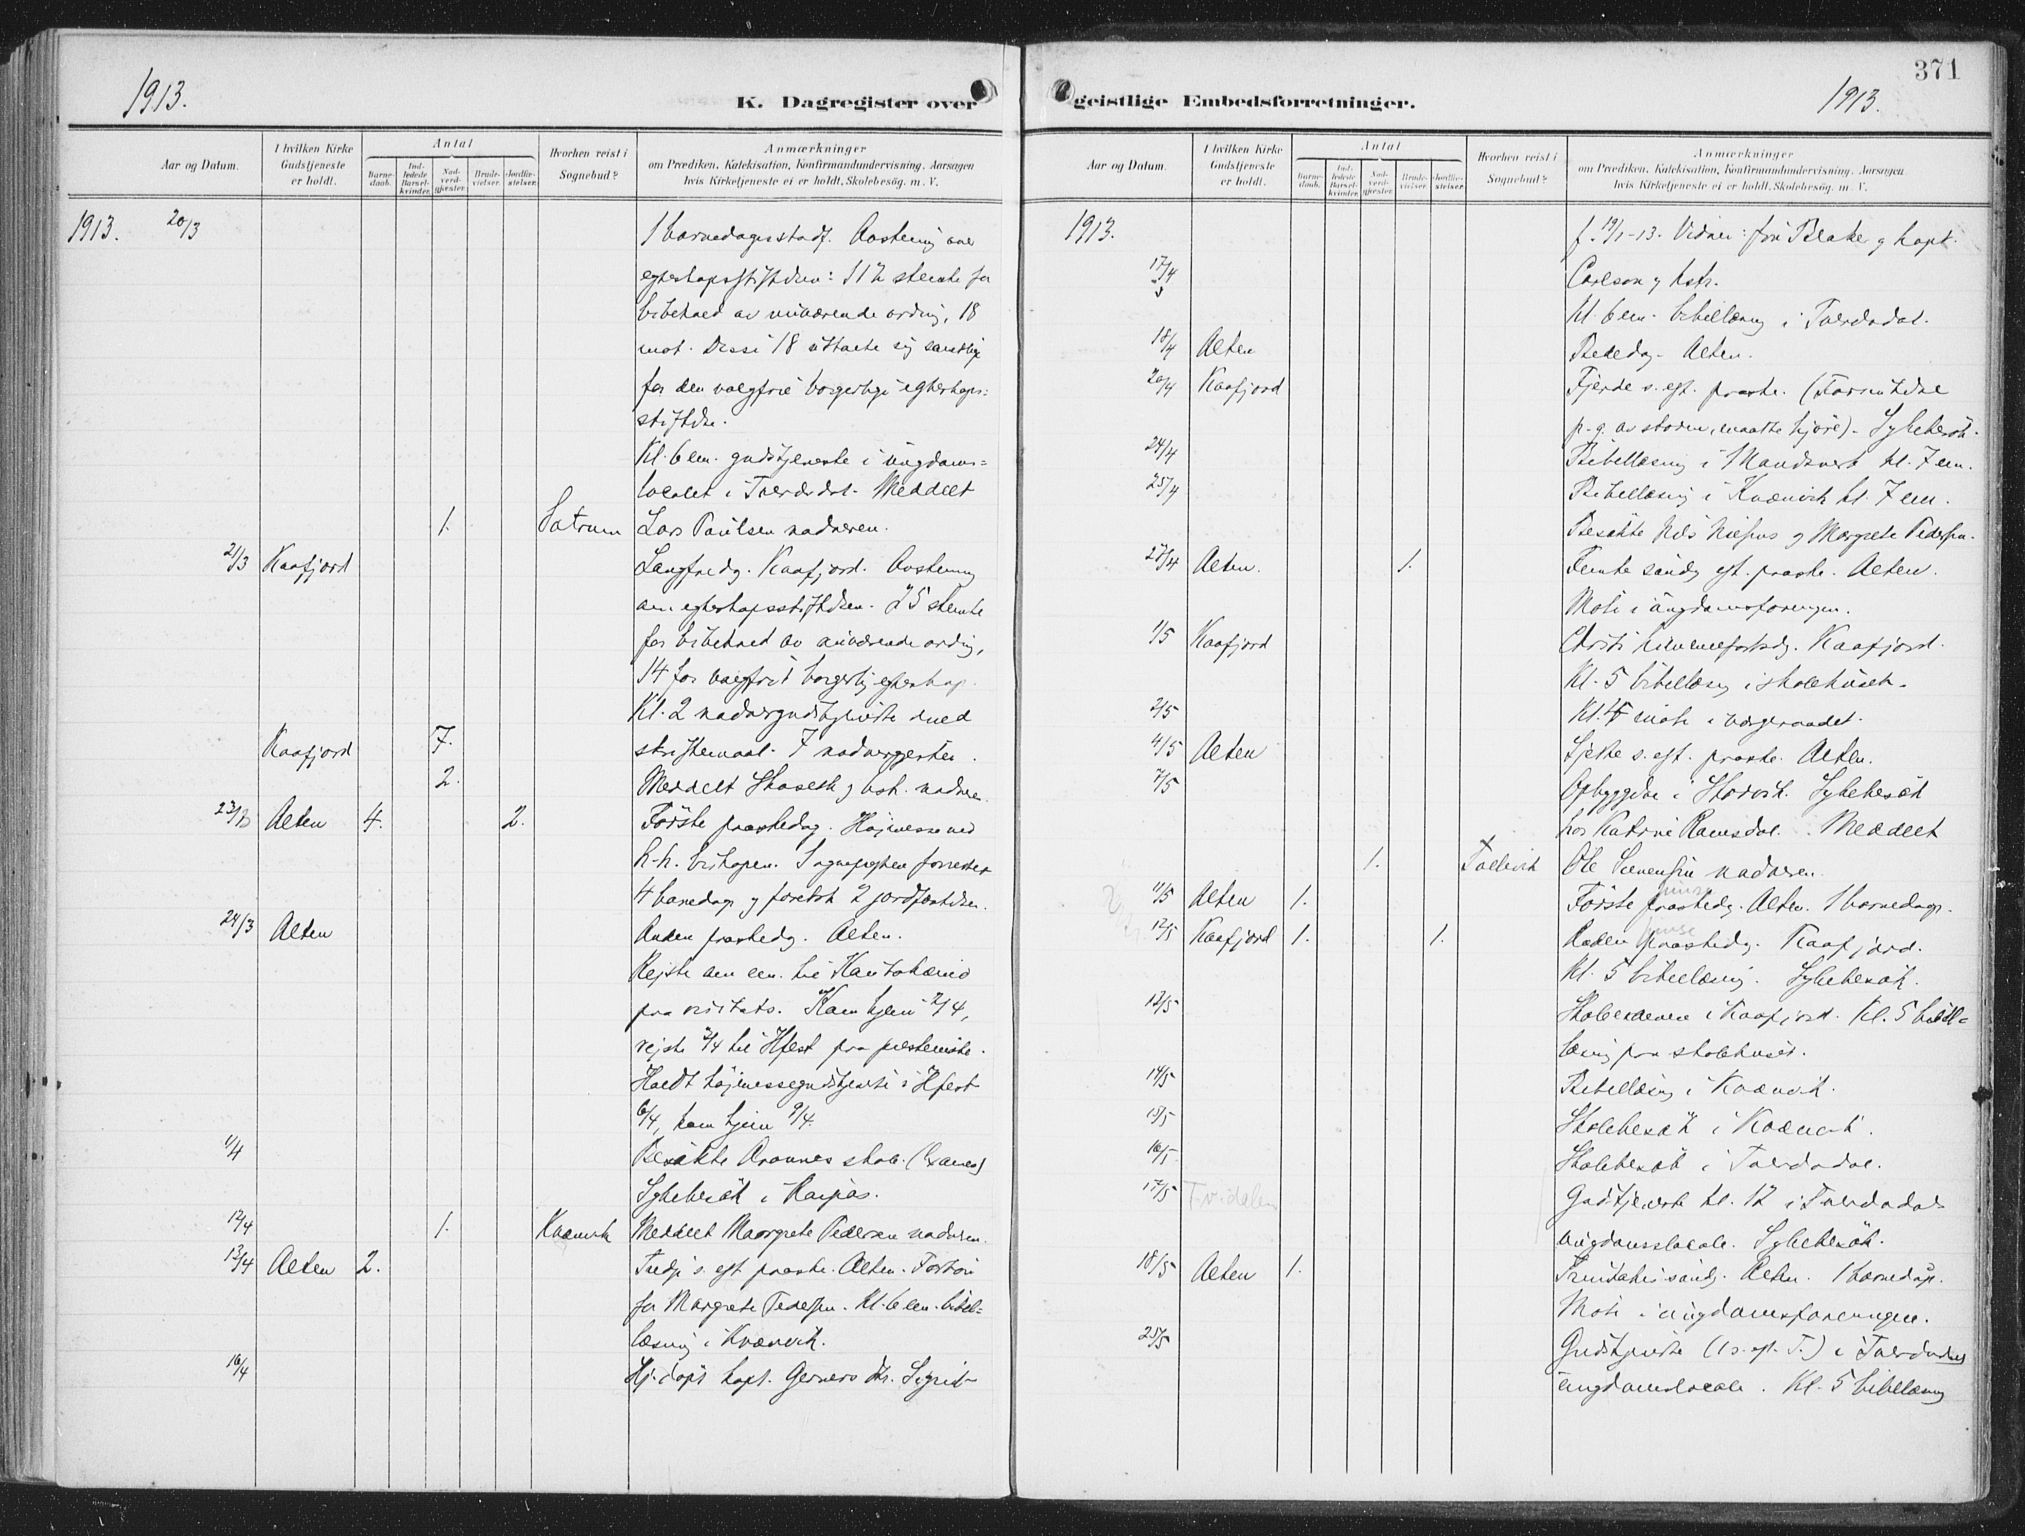 1913.
K. Dagregister over
Aar og Datum.
I hvilken Kirke Gudstjeneste er holdt.
Antal
Barnedaab.
Indledede Barselkvinder.
Nadverdgjester.
Brudevielser.
Jordfæstelser.
Hvorhen reist i Sognebud?
Anmærkninger
om Prædiken, Katekisation, Konfirmandundervisning. Aarsagen
hvis Kirketjeneste ei er holdt, Skolebesög. m. V.
1913. 20/3 1 barnedaap stadf. Avstemning over
egteskapsstiftelsen: 112 stemte for
bibehold av nuværende ordning, 18
mot. Disse 18 uttalte sig samtlige
for den valgfrie borgerlige egteskaps=
stiftelse.
Kl. 6 em. gudstjeneste i ungdoms=
localet i Tverelvdal. Meddelt
1. Lars Paulsen nadveren.
21/3 Kaafjord Langfredag. Kaafjord. Avstemning
om egteskapsstiftelsen. 25 stemte
for bibehold av nuværende ordning,
14 for valgfrit borgerlig egteskap.
Kl. 2 nadvergudstjeneste med
Kaafjord 7. skriftemaal. 7 nadvergjester.
2. Meddelt nadveren.
23/3 Alten 4. 2. Første paaskedag. Højmesse ved
h.h. biskopen. Sognepresten forrettet
4 barnedaap og foretok 2 jordfæstelser.
24/3 Alten Anden paaskedag. Alten.
Rejste om em. til Kautokeino
paa visitats. Kom hjem 2/4,
rejste 3/4 til Hfest paa prestemøte.
Holdt højmessegudstjeneste i Hfest
6/4, kom hjem 9/4.
1/4 Besøkte Aronnes skole. (Examen)
Sykebesøk i Raipas.
12/4 1. Kvænvik Meddelt Margrete Pedersen nadveren.
13/4 Alten 2. Tredje s. eft. paaske. Alten. Forbøn
for Margrete Pedersen. Kl. 6 em. bibel=
læsning i Kvænvik.
16/4 Hj. døpt kapt. Gerners dtr. Sigrid
371
geistlige Embedsforretninger.
1913.
Aar og Datum.
I hvilken Kirke Gudstjeneste er holdt.
Antal
Barnedaab.
Indledede Barselkvinder.
Nadverdgjester.
Brudevielser.
Jordfæstelser.
Hvorhen reist i Sognebud?
Anmærkninger
om Prædiken, Katekisation, Konfirmandundervisning. Aarsagen
hvis Kirketjeneste ei er holdt, Skolebesög. m. V.
1913. f. 19/1-13. Vidner: fru og kapt.
17/4 Carlson og hstr.
Kl. 6 em. bibellæsning i Tverelvdal.
18/4 Alten Bededag. Alten.
20/4 Kaafjord Fjerde s. eft. paaske. (
p.g. av storm, maatte kjøre). Sykebesøk.
24/4 Bibellæsning i Mandsverk kl. 7 em.
25/4 Bibellæsning i Kvænvik kl. 7 em.
Besøkte Nils og Margrete Pedersen.
27/4 Alten. 1. Femte søndag eft. paaske. Alten.
Møte i ungdomsforeningen.
1/5 Kaafjord Christi himmelfartsdag. Kaafjord.
Kl. 5 bibellæsning i skolehuset.
2/5 Kl. 4 møte i vergeraadet.
4/5 Alten Sjette s. eft. paaske. Alten.
7/5 Opbyggelse i Storvik. Sykebesøk
hos Katrine Ramsdal. Meddelt
1. Talvik Ole nadveren.
11/5 Alten 1. Første pinse paaskedag. Alten. 1 barnedaap.
12/5 Kaafjord 1. 1. Anden pinse paaskedag. Kaafjord.
Kl. 5 bibellæsning. Sykebesøk.
13/5 Skoleexamen i Kaafjord. Kl. 5 bibel=
læsning paa skolehuset.
14/5 Bibellæsning i Kvænvik.
15/5 Skolebesøk i Kvænvik.
16/5 Skolebesøk i Tverelvdal.
17/5 Tv.dalen Gudstjeneste kl. 12 i Tverelvdals
ungdomslocale. Sykebesøk.
18/5 Alten 1. Trinitatis søndag. Alten. 1 barnedaap.
Møte i ungdomsforeningen.
25/5 Gudstjeneste (1 s. eft. T.) i Tverelvdalens
ungdomslocale. Kl. 5 bibellæsning